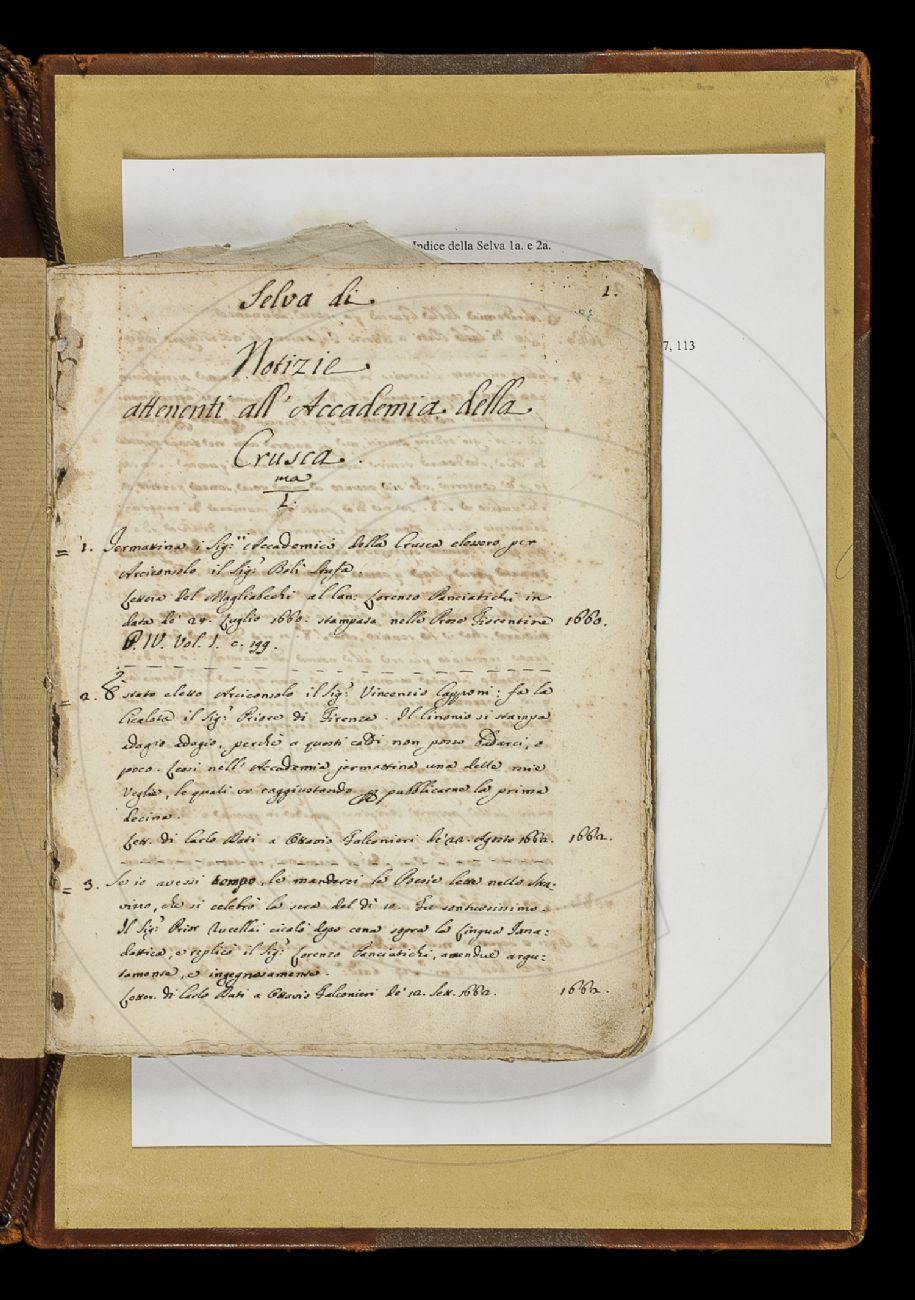 Indice della Selva 1a. e 2a.
7, 113
Selva di
1.
Notizie
attenenti all'Accademia della
Crusca.
I.ma
= 1. Jermattina i Sig:ri Accademici della Crusca elessero per
Arciconsolo il Sig.r Balì Stufa.
Lettera del Magliabechi al Can: Lorenzo Panciatichi in
data de' 24. Luglio 1660. stampata nelle Prose Fiorentine 1660.
P. IV. Vol. I. c. 199.
= 2. È stato eletto Arciconsolo il Sig.r Vincenzio Capponi: fa la
Cicalata il Sig.r Priore di Firenze. Il Cinonio si stampa
adagio adagio, perchè a questi caldi non posso badarci, o
poco. Lessi nell'Accademia jermattina una delle mie
Veglie, le quali vo raggiustando per pubblicarne la prima
decina.
Lett. di Carlo Dati a Ottavio Falconieri de' 22. Agosto 1662. 1662.
= 3. Se io avessi tempo, le manderei le Poesie lette nello Stra-
vizzo, che si celebrò la sera del dì 10. Fu sontuosissimo.
Il Sig.r Prior Rucellai cicalò dopo cena sopra la Lingua Jana-
dattica, e replicò il Sig.r Lorenzo Panciatichi, amendue argu-
tamente, e ingegnosamente.
Letter. di Carlo Dati a Ottavio Falconieri de' 12. Sett. 1662. 1662.